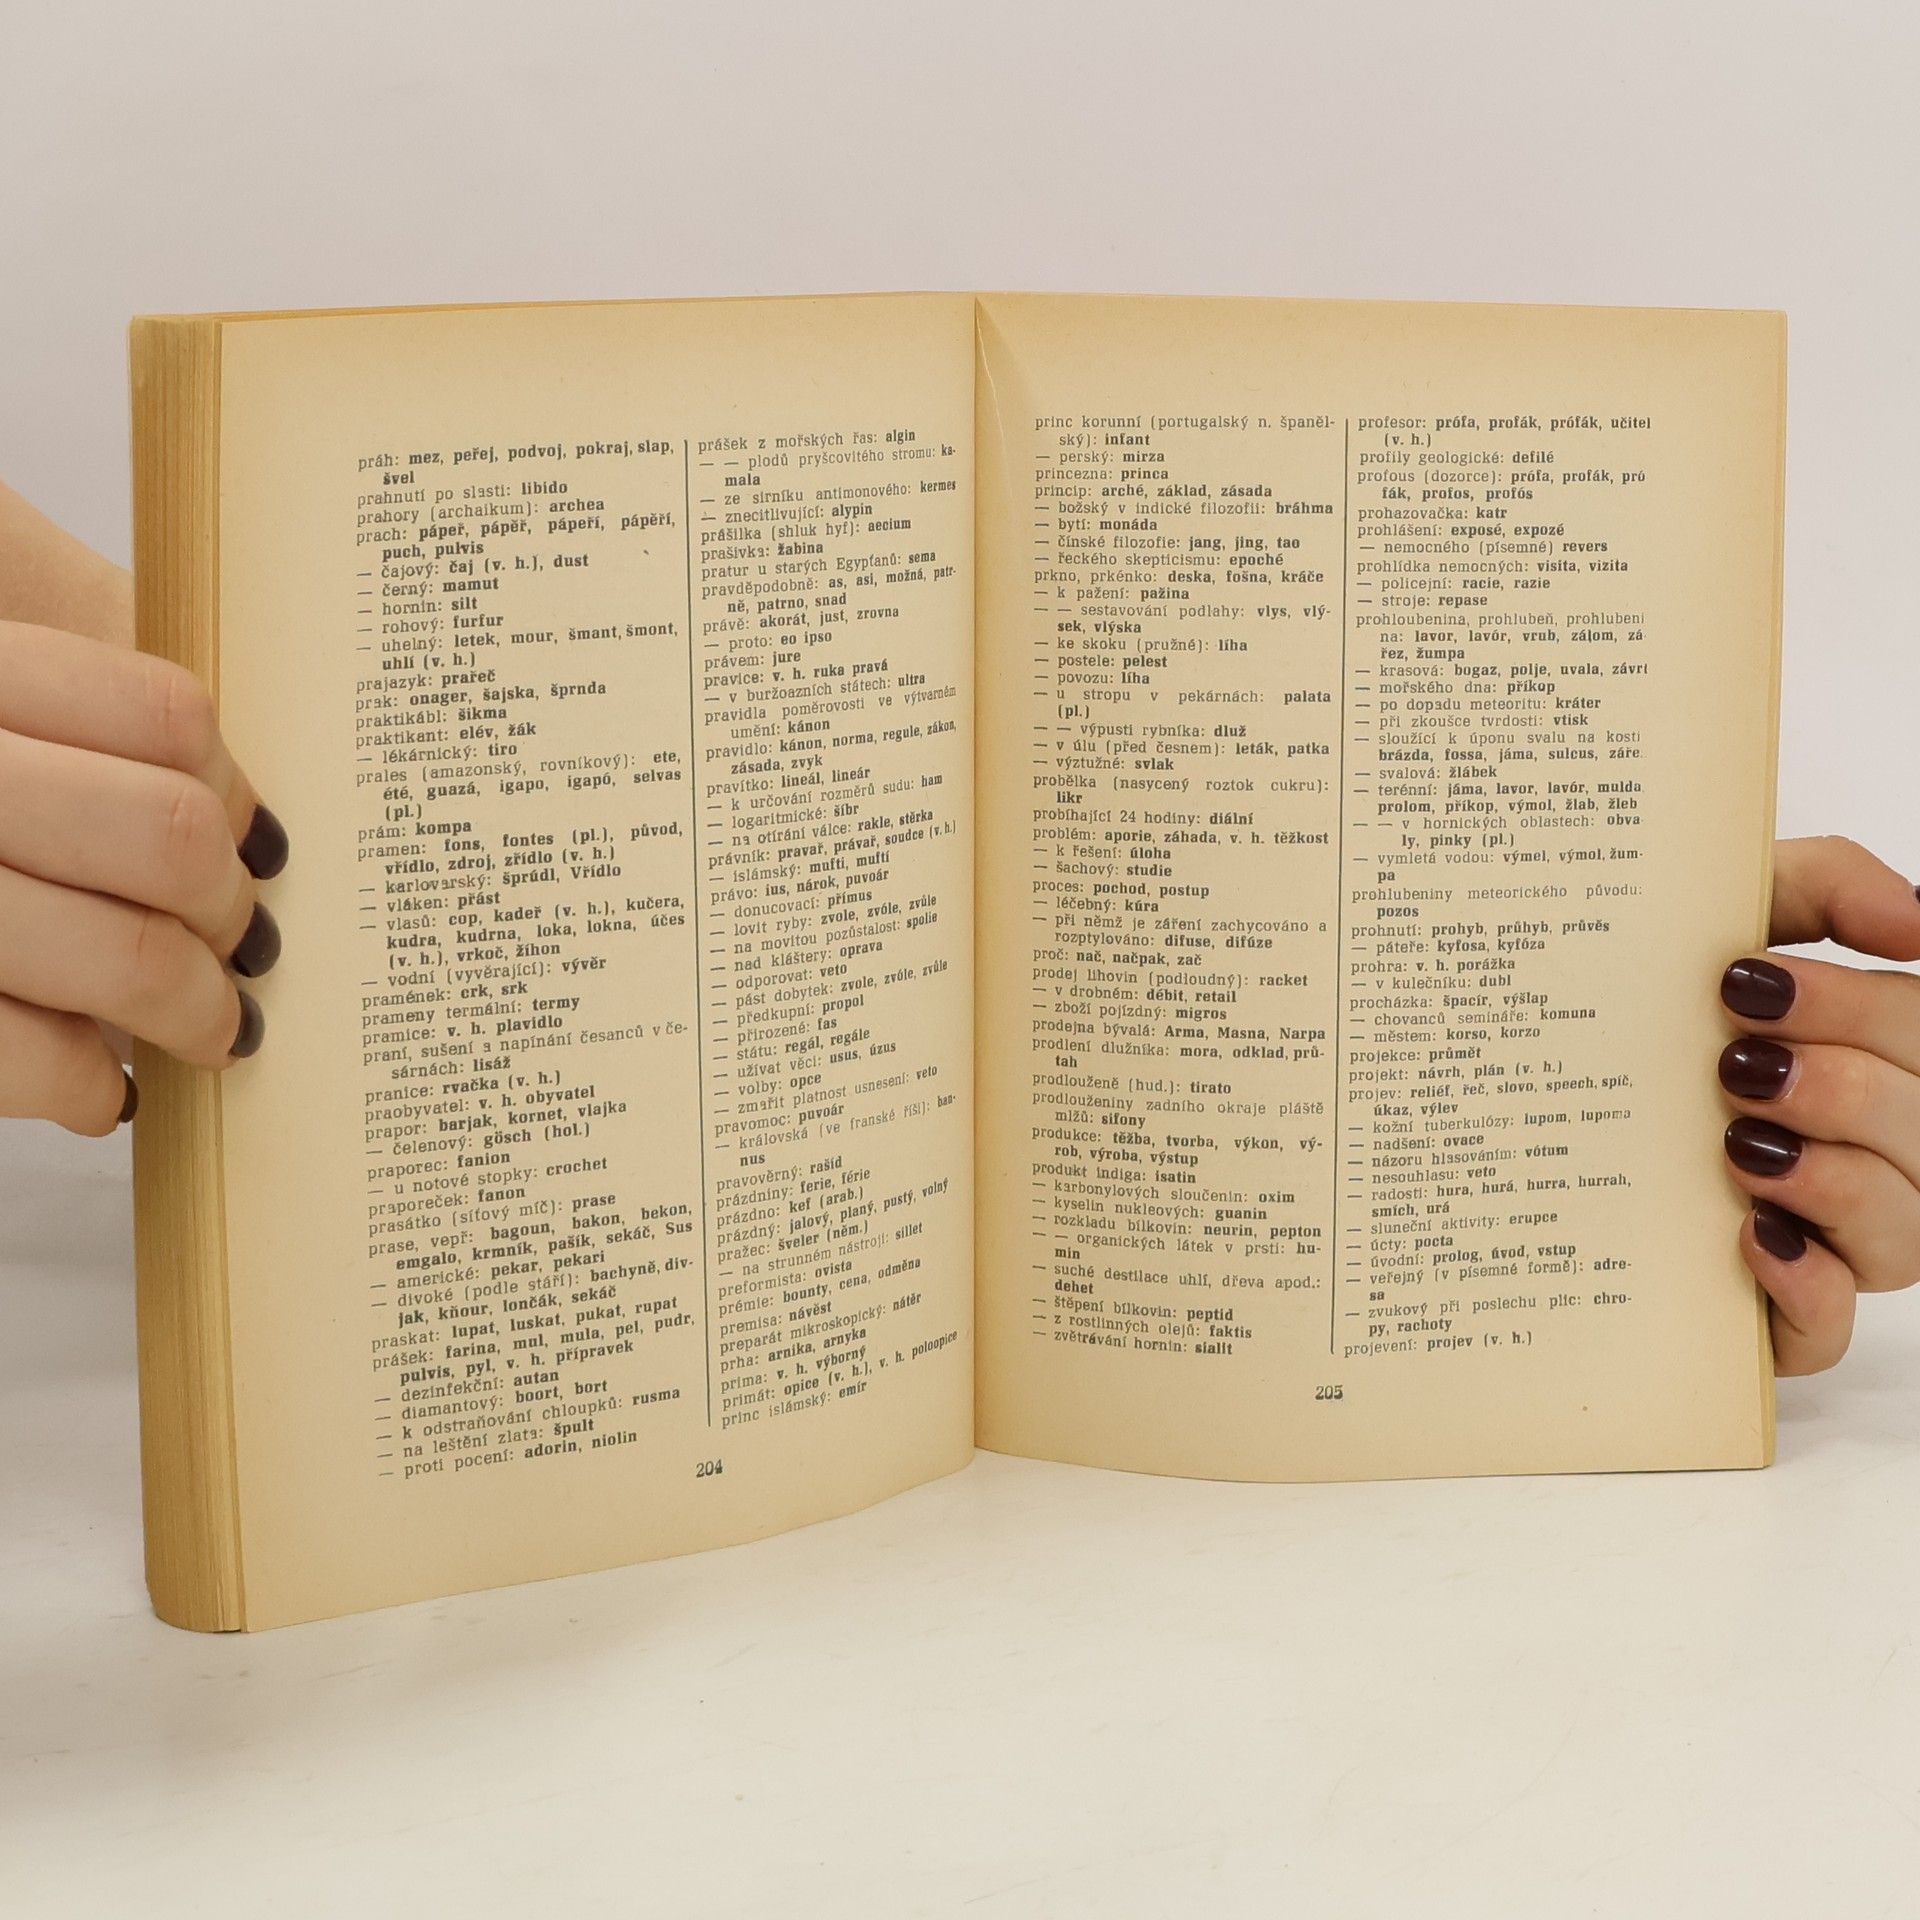 práh: mez, peřej, podvoj, pokraj, slap,
švel
prahnutí po slasti: libido
prahory (archaikum): archea
prach: páper, pápěř, pápeří, pápěří,
puch, pulvis
— čajový: čaj (v. h.), dust
— černý: mamut
— hornin: silt
— rohový: furfur
— uhelný: letek, mour, šmant, šmont,
uhlí (v. h.)
prajazyk: prařeč
prak: onager, šajska, šprnda
praktikábl: šikma
praktikant: elév, žák
— lékárnický: tiro
prales (amazonský, rovníkový): ete,
été, guazá, igapo, igapó, selvas
(pl.)
prám: kompa
pramen: fons, fontes (pl.), původ,
vřídlo, zdroj, zřídlo (v. h.)
— karlovarský: šprúdl, Vřídlo
— vláken: přást
— vlasů: cop, kadeř (v. h.), kučera,
kudra, kudrna, loka, lokna, účes
(v. h.), vrkoč, žíhon
— vodní (vyvěrající): vývěr
pramének: crk, srk
prameny termální: termy
pramice: v. h. plavidlo
praní, sušení a napínání česanců v če-
sárnách: lisáž
pranice: rvačka (v. h.)
praobyvatel: v. h. obyvatel
prapor: barjak, kornet, vlajka
— čelenový: gösch (hol.)
praporec: fanion
— u notové stopky: crochet
praporeček: fanon
prasátko (síťový míč): prase
prase, vepř: bagoun, bakon, bekon,
emgalo, krmník, pašík, sekáč, Sus
— americké: pekar, pekari
— divoké (podle stáří): bachyně, div-
jak, kňour, lončák, sekáč
praskat: lupat, luskat, pukat, rupat
prášek: farina, mul, mula, pel, pudr,
pulvis, pyl, v. h. přípravek
— dezinfekční: autan
— diamantový: boort, bort
— k odstraňování chloupků: rusma
— na leštění zlata: špult
— proti pocení: adorin, niolin
prášek z mořských řas: algin
— — plodů pryšcovitého stromu: ka-
mala
— ze sirníku antimonového: kermes
— znecitlivující: alypin
prášilka (shluk hyf): aecium
prašivka: žabina
pratur u starých Egypťanů: sema
pravděpodobně: as, asi, možná, patr-
ně, patrno, snad
právě: akorát, just, zrovna
— proto: eo ipso
právem: jure
pravice: v. h. ruka pravá
— v buržoazních státech: ultra
pravidla poměrovosti ve výtvarném
umění: kánon
pravidlo: kánon, norma, regule, zákon,
zásada, zvyk
pravítko: lineál, lineár
— k určování rozměrů sudu: ham
— logaritmické: šíbr
— na otírání válce: rakle, stěrka
právník: pravař, právař, soudce (v. h.)
— islámský: mufti, muftí
právo: ius, nárok, puvoár
— donucovací: přímus
— lovit ryby: zvole, zvóle, zvůle
— na movitou pozůstalost: spolie
— nad kláštery: oprava
— odporovat: veto
— pást dobytek: zvole, zvóle, zvůle
— předkupní: propol
— přirozené: fas
— státu: regál, regále
— užívat věci: usus, úzus
— volby: opce
— zmařit platnost usnesení: veto
pravomoc: puvoár
— královská (ve franské říši): ban-
nus
pravověrný: rašíd
prázdniny: ferie, férie
prázdno: kef (arab.)
prázdný: jalový, planý, pustý, volný
pražec: šveler (něm.)
— na strunném nástroji: sillet
preformista: ovista
prémie: bounty, cena, odměna
premisa: návěst
preparát mikroskopický: nátěr
prha: arnika, arnyka
prima: v. h. výborný
primát: opice (v. h.), v. h. poloopice
princ islámský: emír
204
princ korunní (portugalský n. španěl-
ský): infant
— perský: mirza
princezna: princa
princip: arché, základ, zásada
— božský v indické filozofii: bráhma
— bytí: monáda
— čínské filozofie: jang, jing, tao
— řeckého skepticismu: epoché
prkno, prkénko: deska, fošna, kráče
— k pažení: pažina
— — sestavování podlahy: vlys, vlý-
sek, vlýska
— ke skoku (pružné): líha
— postele: pelest
— povozu: líha
— u stropu v pekárnách: palata
(pl.)
— — výpusti rybníka: dluž
— v úlu (před česnem): leták, patka
— výztužné: svlak
probělka (nasycený roztok cukru):
likr
probíhající 24 hodiny: diální
problém: aporie, záhada, v. h. těžkost
— k řešení: úloha
— šachový: studie
proces: pochod, postup
— léčebný: kúra
— při němž je záření zachycováno a
rozptylováno: difuse, difúze
proč: nač, načpak, zač
prodej lihovin (podloudný): racket
— v drobném: débit, retail
— zboží pojízdný: migros
prodejna bývalá: Arma, Masna, Narpa
prodlení dlužníka: mora, odklad, prů-
tah
prodlouženě (hud.): tirato
prodlouženiny zadního okraje pláště
mlžů: sifony
produkce: těžba, tvorba, výkon, vý-
rob, výroba, výstup
produkt indiga: isatin
— karbonylových sloučenin: oxim
— kyselin nukleových: guanin
— rozkladu bílkovin: neurin, pepton
— — organických látek v prsti: hu-
min
— suché destilace uhlí, dřeva apod.:
dehet
— štěpení bílkovin: peptid
— z rostlinných olejů: faktis
— zvětrávání hornin: siallt
profesor: prófa, profák, prófák, učitel
(v. h.)
profily geologické: defilé
profous (dozorce): prófa, profák, pró
fák, profos, profós
prohazovačka: katr
prohlášení: exposé, expozé
— nemocného (písemné) revers
prohlídka nemocných: visita, vizita
— policejní: racie, razie
— stroje: repase
prohloubenina, prohlubeň, prohlubeni
na: lavor, lavór, vrub, zálom, zá
řez, žumpa
— krasová: bogaz, polje, uvala, závrt
— mořského dna: příkop
— po dopadu meteoritu: kráter
— při zkoušce tvrdosti: vtisk
— sloužící k úponu svalu na kosti
brázda, fossa, jáma, sulcus, záře.
— svalová: žlábek
— terénní: jáma, lavor, lavór, mulda
prolom, příkop, výmol, žlab, žleb
— — v hornických oblastech: obva
ly, pinky (pl.)
— vymletá vodou: výmel, výmol, žum-
pa
prohlubeniny meteorického původu:
pozos
prohnutí: prohyb, průhyb, průvěs
— páteře: kyfosa, kyfóza
prohra: v. h. porážka
— v kulečníku: dubl
procházka: špacír, výšlap
— chovanců semináře: komuna
— městem: korso, korzo
projekce: průmět
projekt: návrh, plán (v. h.)
projev: reliéf, řeč, slovo, speech, spíč,
úkaz, výlev
— kožní tuberkulózy: lupom, lupoma
— nadšení: ovace
— názoru hlasováním: vótum
— nesouhlasu: veto
— radosti: hura, hurá, hurra, hurrah,
smích, urá
— sluneční aktivity: erupce
— úcty: pocta
— úvodní: prolog, úvod, vstup
— veřejný (v písemné formě): adre-
sa
— zvukový při poslechu plic: chro-
py, rachoty
projevení: projev (v. h.)
205